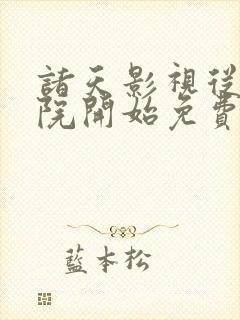 諸天影視從
院開始免費
藍本松